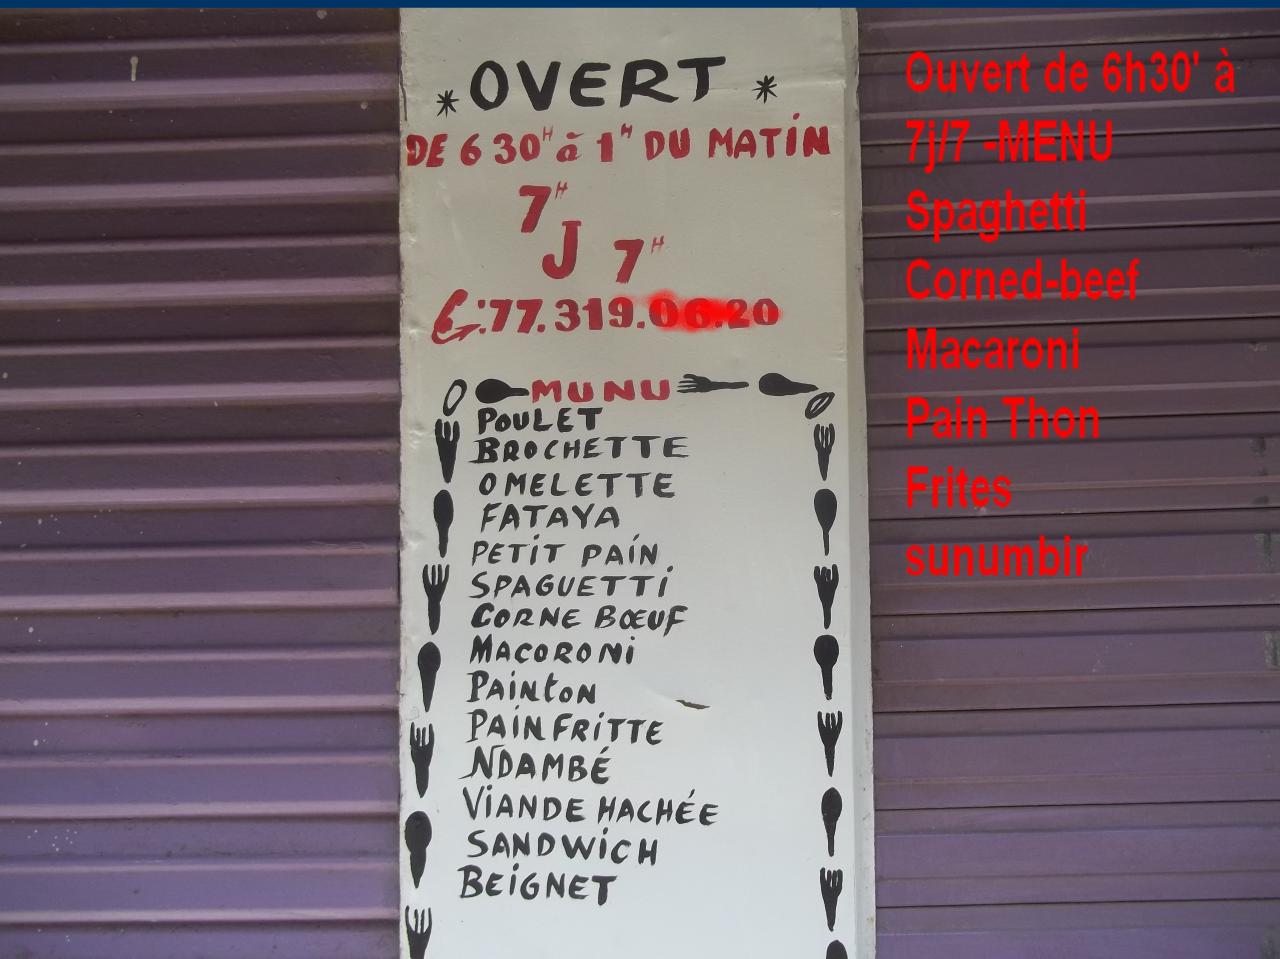 * OVERT *
DE 6 30H à 1H DU MATIN
7H
J 7H
:77.319.06.20
MUNU
POULET
BROCHETTE
OMELETTE
FATAYA
PETIT PAIN
SPAGUETTI
CORNE BŒUF
MACORONI
PAINTON
PAIN FRITTE
NDAMBÉ
VIANDE HACHÉE
SANDWICH
BEIGNET
Ouvert de 6h30' à
7j/7 -MENU
Spaghetti
Corned-beef
Macaroni
Pain Thon
Frites
sunumbir